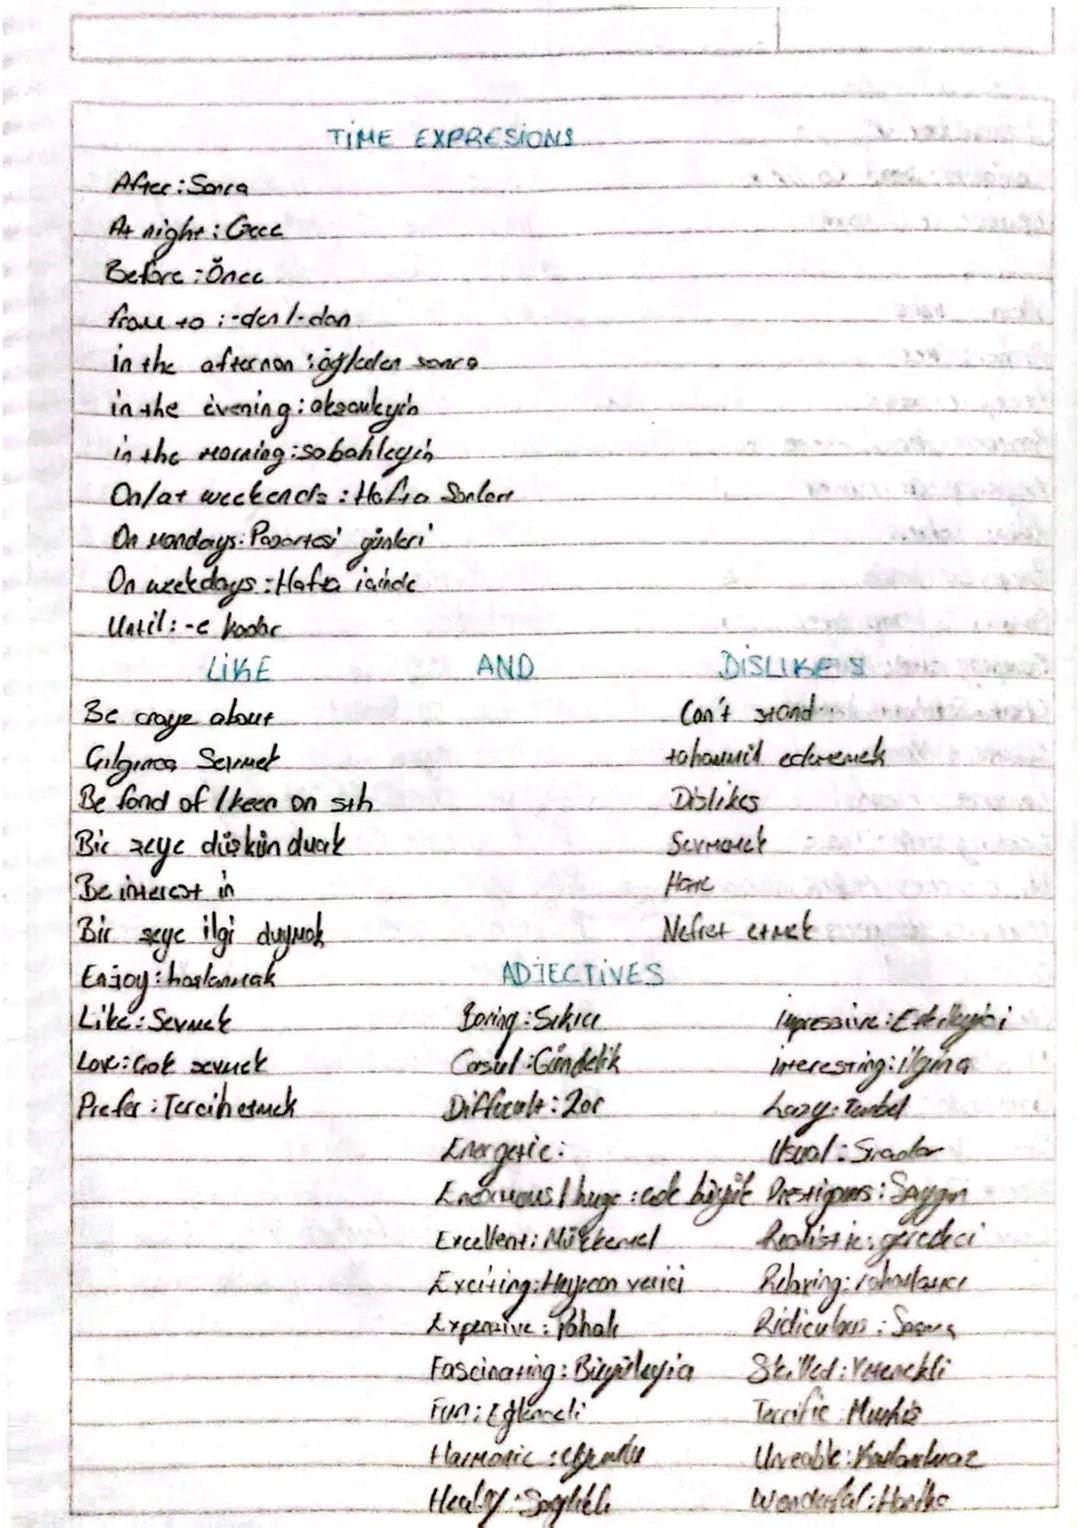 TİME EXPRESİONS
After : Sonra
At night : Gece
Before : Önce
from to : -den / -dan
in the afternon : öğleden sonra
in the evening : aksamleyin
in the morning : sabahleyin
On/at weekends : Hafta Sonları
On mondays : Pazartesi günleri
On weekdays : Hafta içinde
Until : -e kadar
LİKE AND DİSLİKES
Be craye about Can't stand
Çılgınca Sevmek tahammül edememek
Be fond of / keen on sth Dislikes
Bir şeye düşkün Sevmemek
Be interest in Hate
Bir şeye ilgi duymak Nefret etmek
Enjoy : hoslanmak ADJECTİVES
Like : Sevmek Boring : Sıkıcı Impressive : Etkileyici
Love : Çok sevmek Casual : Gündelik interesting : ilginç
Prefer : Tercih etmek Difficult : Zor Lazy : Tembel
Energetic : Usual : Sıradan
Enormous / huge : çok büyük Prestigous : Saygın
Excellent : Mükkemel Realistic : geredeci
Exciting : Heyecan verici Relaxing : rahatlatıcı
Expensive : Pahalı Ridiculous : Saçma
Fascinating : Büyüleyici Skilled : Yetenekli
Fun : Eğlenceli Terrific : Müthis
Harmonic : uyumlu
Healty : Sağlıklı Wonderful : Harika